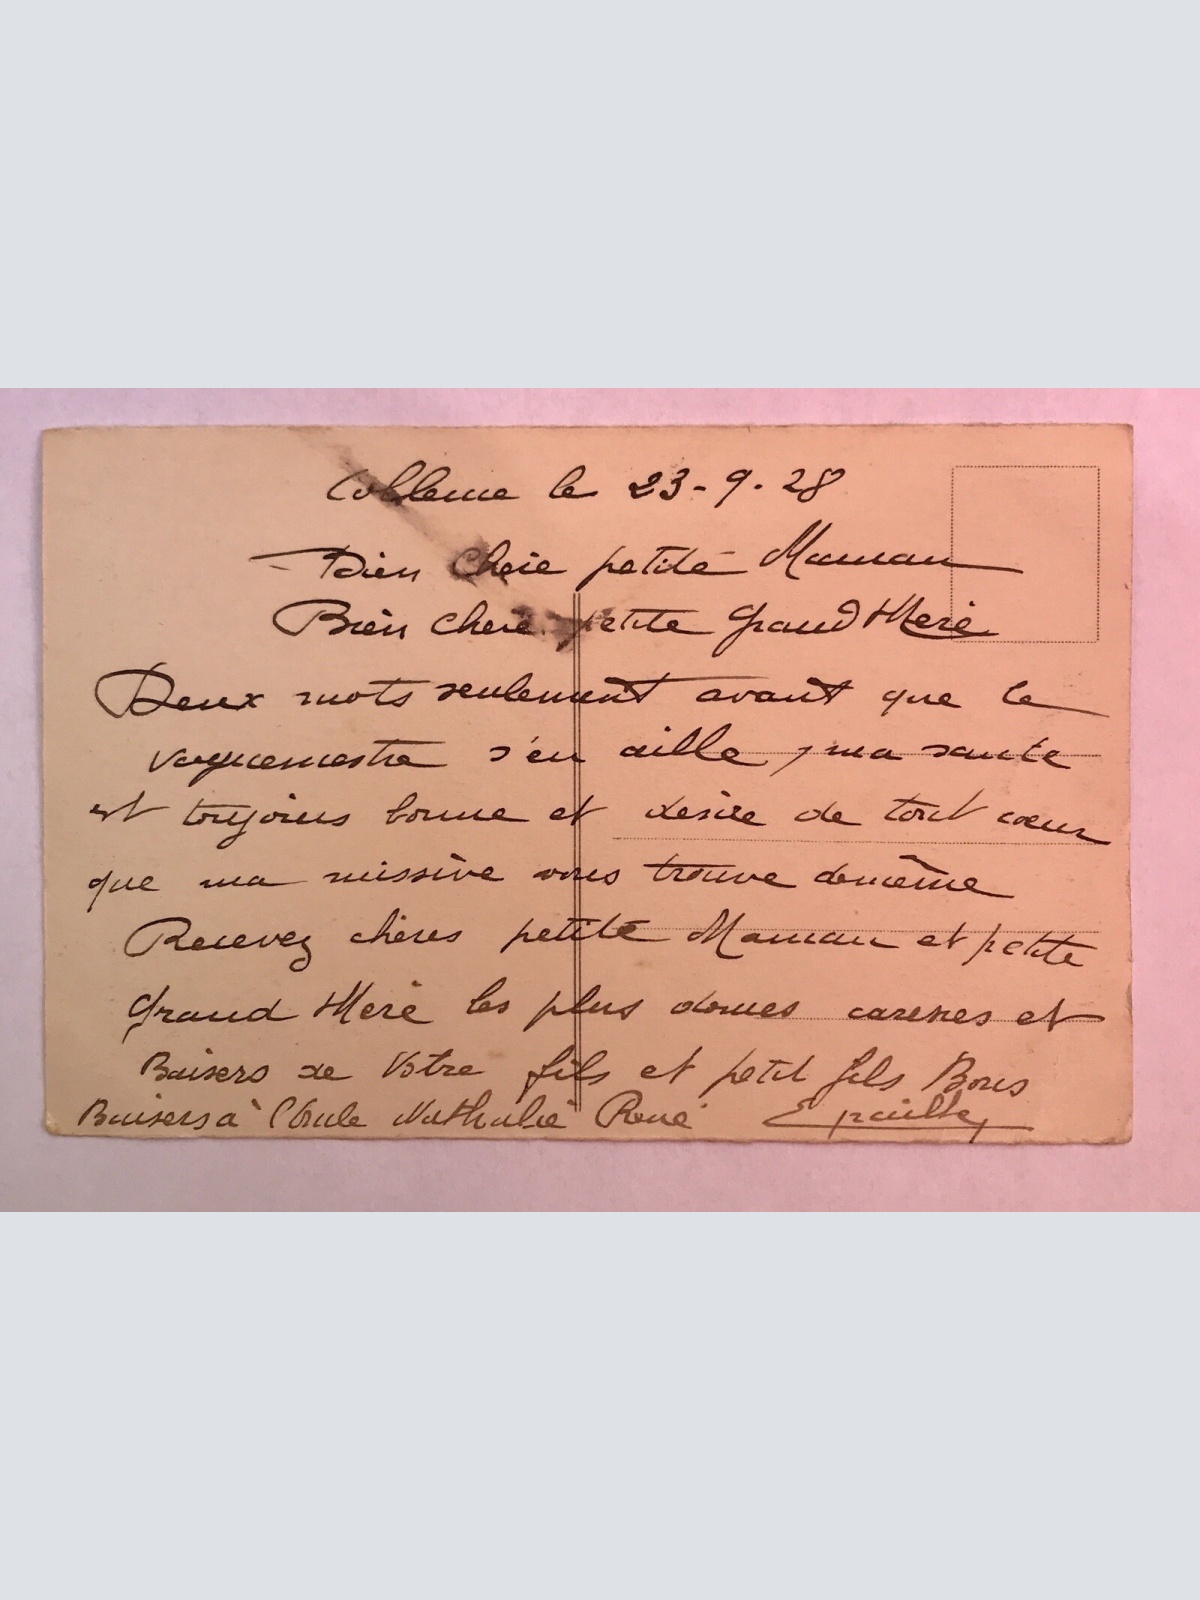 Coblence le 23-9.28
Bien Chère petite Maman
Bien Chère petite Grand Mère
Deux mots seulement avant que le
vaguemestre s'en aille, ma santé
est toujours bonne et désire de tout coeur
que ma missive vous trouve demême
Recevez chères petite Maman et petite
Grand Mère les plus douces caresses et
Baisers de Votre fils et petit fils Boris
Baisers à Nathalie René